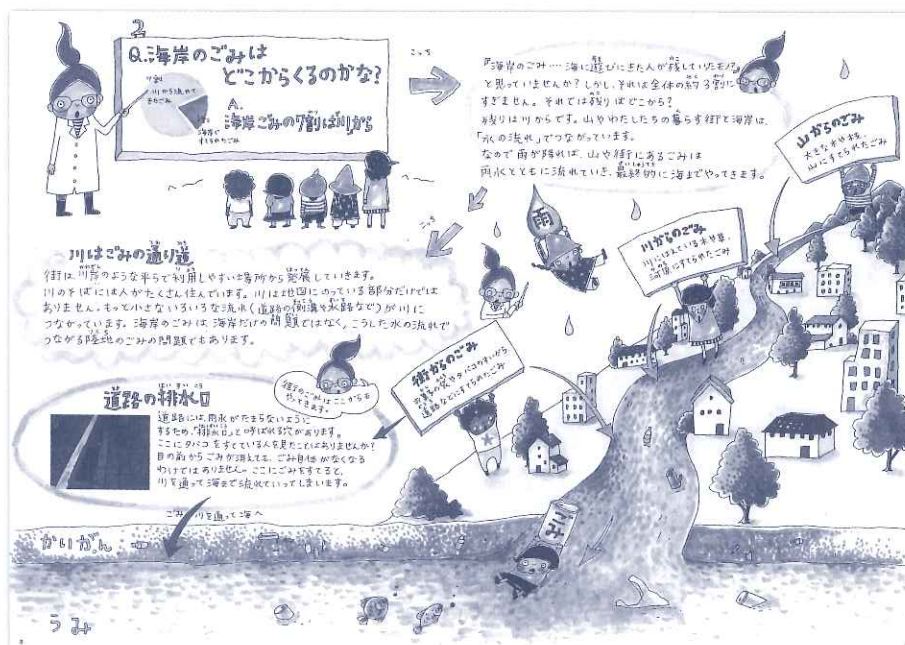 2
Q.海岸のごみは
どこからくるのかな?
7割
川から流れて
きたごみ
3割
海岸で
すてられたごみ
A.
海岸ごみの7割は川から
こっち
『海岸のごみ…海に遊びにきた人が残していったモノ?』
と思っていませんか?しかし、それは全体の約3割に
すぎません。それでは残りはどこから?
残りは川からです。山やわたしたちの暮らす街と海岸は、
「水の流れ」でつながっています。
なので雨が降れば、山や街にあるごみは
雨水とともに流れていき、最終的に海までやってきます。
こっち
山からのごみ
大きな木や枝、
山にすてられたごみ
雨
川からのごみ
川にはえている木や草、
河原にすてられたごみ
川はごみの通り道
街は川岸のような平らで利用しやすい場所から発展していきます。
川のそばには人がたくさん住んでいます。川は地図にのっている部分だけでは
ありません。もっと小さないろいろな流れ(道路の側溝や水路など)が川に
つながっています。海岸のごみは海岸だけの問題ではなく、こうした水の流れで
つながる陸地のごみの問題でもあります。
街からのごみ
お菓子の袋やタバコのすいがら、
道路などにすてられたごみ
街のごみはここからも
やってきます。
道路の排水口
道路には、雨水がたまらないように
するため、"排水口"と呼ばれる穴があります。
ここにタバコをすてている人を見たことはありませんか?
目の前からごみが消えても、ごみ自体がなくなる
わけではありません。ここにごみをすてると、
川を通って海まで流れていってしまいます。
ごみが川を通って海へ
かいがん
ごみ
うみ